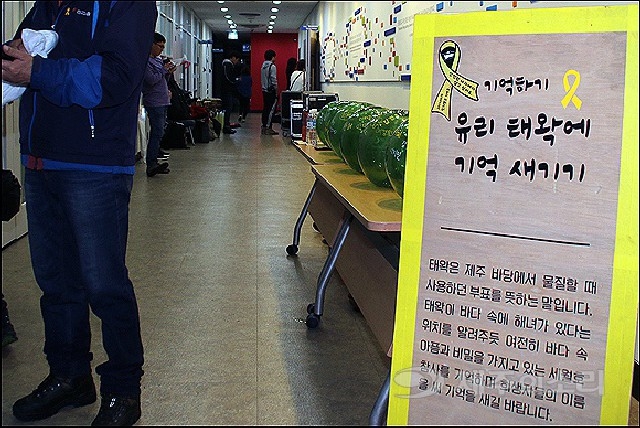 기억하기
유리 태왁에
기억 새기기
태왁은 제주 바당에서 물질할 때
사용하던 부표를 뜻하는 말입니다.
태왁이 바다 속에 해녀가 있다는
위치를 알려주듯 여전히 바다 속
아픔과 비밀을 가지고 있는 세월호
참사를 기억하며 희생자들의 이름
을 새 기억을 새길 바랍니다.
제주의소리